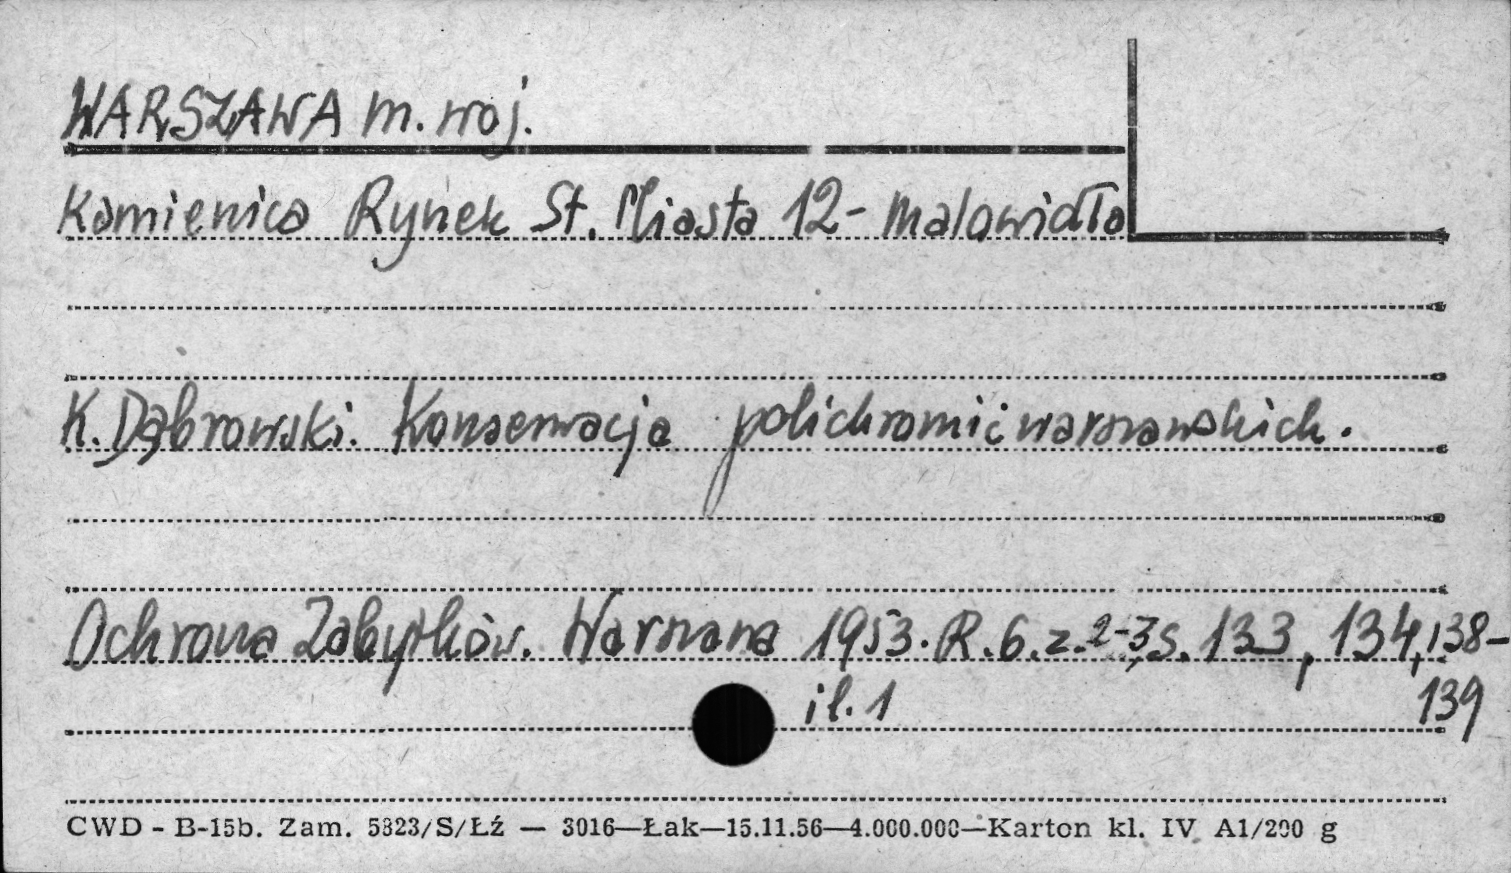 WARSZAWA m. woj.
Kamienica Rynek St. Miasta 12 - malowidła
K. Dąbrowski. Konserwacja polichromii warszawskich.
Ochrona Zabytków. Warszawa 1953. R. 6. z. 2-3, s. 133, 134, 138-
139
il. 1
CWD - B-15b. Zam. 5823/S/Łź — 3016—Łak—15.11.56—4.000.000—Karton kl. IV A1/200 g